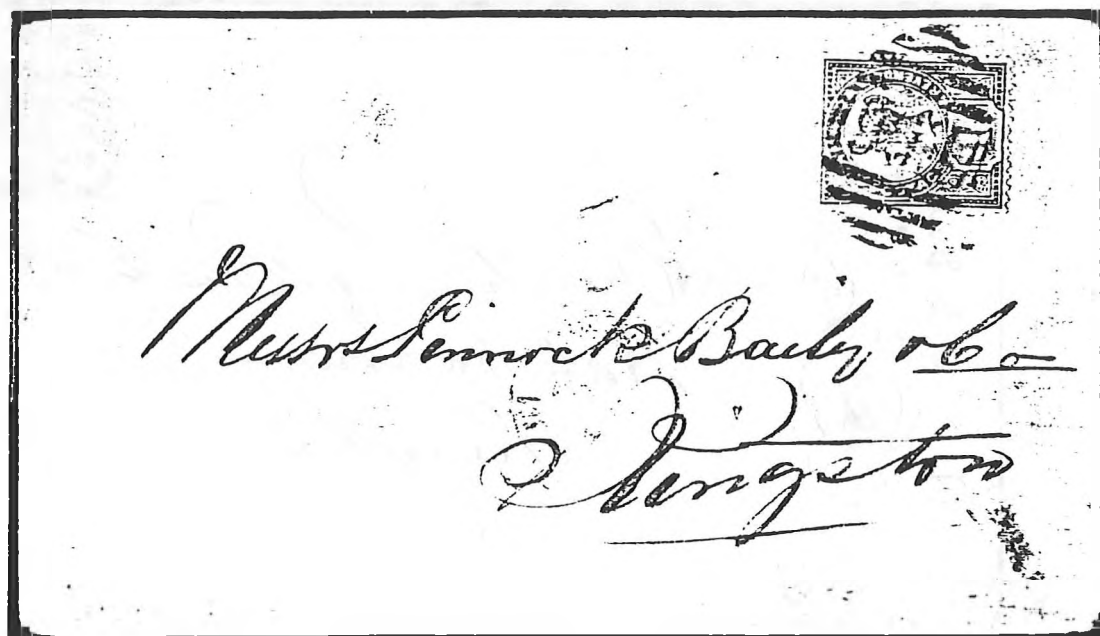 Messrs Pinnock Baily & Co
Kingston